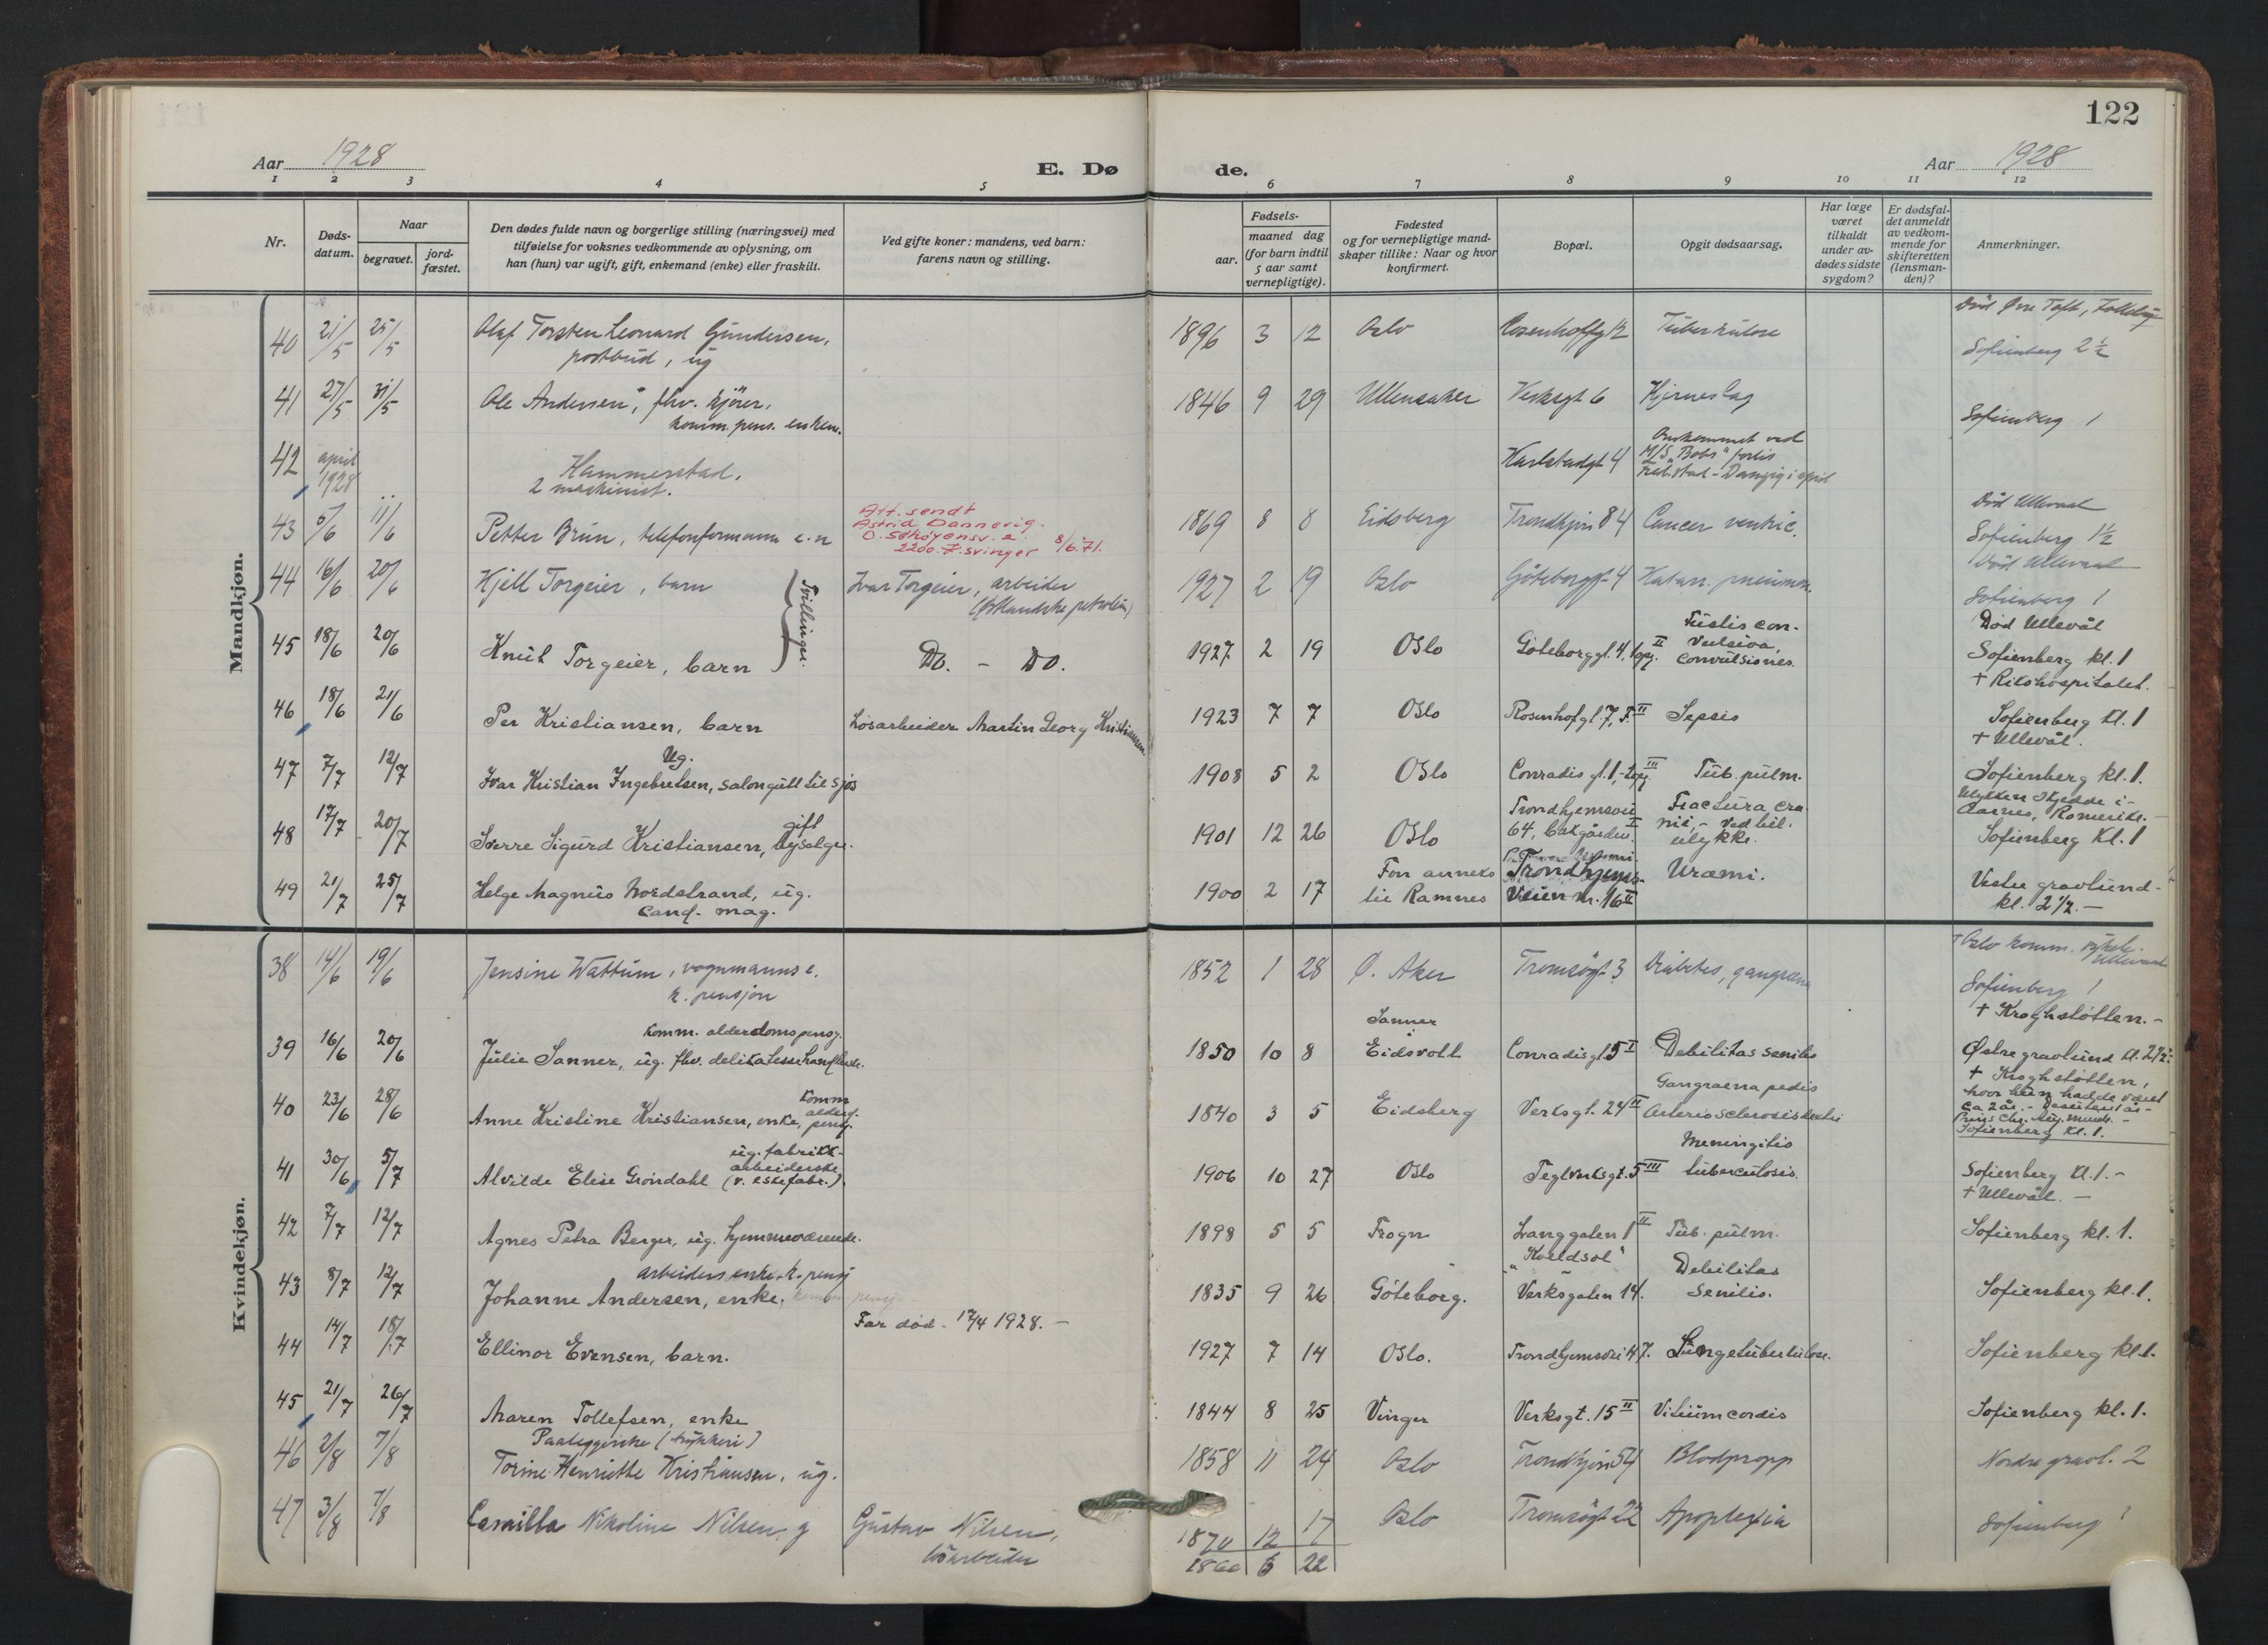 122
Aar 1928
E. Dø
de.
Aar 1928
1 2 3 4 5 6 7 8 9 10 11 12
Nr.
Døds-
datum.
Naar
begravet.
jord-
fæstet.
Den dødes fulde navn og borgerlige stilling (næringsvei) med
tilføielse for voksnes vedkommende av oplysning, om
han (hun) var ugift, gift, enkemand (enke) eller fraskilt.
Ved gifte koner: mandens, ved barn:
farens navn og stilling.
Fødsels-
aar.
maaned dag
(for barn indtil
5 aar samt
vernepligtige).
Fødested
og for vernepligtige mand-
skaper tillike: Naar og hvor
konfirmert.
Bopæl.
Opgit dødsaarsag.
Har læge
været
tilkaldt
under av-
dødes sidste
sygdom?
Er dødsfal-
det anmeldt
av vedkom-
mende for
skifteretten
(lensman-
den)?
Anmerkninger.
Mandkjøn.
40 21/5 25/5 Olaf Torsten Leonard Gundersen,
postbud, ug
1896 3 12 Oslo Rosenhoffgt 12 Tuberkulose
Sofienberg 2 1/2
41 27/5 31/5 Ole Andersen, fhv. kjører,
komm. pens. enkem.
1846 9 29 Ullensaker Verksgt 6 Hjerneslag
Sofienberg 1
42 april
1928
Hammerstad,
2 maskinist.
Karlstadgt 4
Omkommet ved
M/S "Bobs" forlis
Fredr.stad - Danzig i april
43 5/6 11/6 Petter Brun, telefonformann e.n
Att. sendt
Astrid Dannevig.
O. Schøyensv. 2
2200. K.svinger 8/6.71.
1869 8 8 Eidsberg Trondhjv 84 Cancer ventric.
Død Ullevaal
Sofienberg 1 1/2
44 16/6 20/6 Kjell Torgeier, barn
Tvillinger.
Ivar Torgeier, arbeider
(Østlandske petroleum)
1927 2 19 Oslo Göteborggt 4 Katarr. pneumon.
Død Ullevaal
Sofienberg 1
45 18/6 20/6 Knut Torgeier, barn
Do. - Do.
1927 2 19 Oslo Göteborggt. 4, II opg.
Tustis con-
vulsiva,
convulsiones.
Død Ullevål
Sofienberg kl. 1
46 18/6 21/6 Per Kristiansen, barn
Løsarbeider Martin Georg Kristiansen
1923 7 7 Oslo Rosenhofgt. 7, F. II Sepsis
+ Rikshospitalet.
Sofienberg kl. 1
47 7/7 12/7 Ug.
Ivar Kristian Ingebretsen, salongutt til sjøs
1908 5 2 Oslo Conradisgt. 1, - III opg. Tub. pulm.
+ Ullevål.
Sofienberg kl. 1.
48 17/7 20/7 gift
Sverre Sigurd Kristiansen, avyselger.
1901 12 26 Oslo
Trondhjemsvei
64, bakgården. I
Fractura cra
nii, - ved bil.
ulykke.
Ulykken skjedde i -
Aarnes, Romerike. -
Sofienberg kl. 1
49 21/7 25/7 Helge Magnus Nordstrand, ug.
cand. mag.
1900 2 17 Fon anneks
til Ramnes
Trondhjems-
Veien nr. 16 II
Uræmi.
Vestre gravlund -
kl. 2 1/2. -
Kvindekjøn.
38 14/6 19/6 Jensine Wattum, vognmanns e.
k. pensjon
1852 1 28 Ø. Aker Tromsøgt 3 Diabetes, gangræna
+ Oslo komm. sykeh.
Ullevaal
Sofienberg 1
39 16/6 20/6 komm. alderdomspensj.
Julie Sanner, ug. fhv. delikatessehandlerske.
1850 10 8 Sanner
i
Eidsvoll
Conradisgt 5 I Debilitas senilis
+ Kroghstøtten. -
Østre gravlund kl. 2 1/2. -
40 23/6 28/6 Anne Kristine Kristiansen, enke, komm.
aldersp.
pensj.
1840 3 5 Eidsberg Verksgt. 24 II
Gangraena pedis
Arteriosclerosis
+ Kroghstøtten,
hvor hun hadde været
ca 2 år. -
Prins Chr. Aug. minde. -
Sofienberg kl. 1.
41 30/6 5/7 ug. fabrikk-
arbeiderske
Alvilde Elise Grøndahl (v. eskefabr.).
1906 10 27 Oslo Teglverksgt. 5 III
Meningitis
tuberculosis.
Sofienberg kl. 1. -
+ Ullevål. -
42 7/7 12/7 Agnes Petra Berger, ug. hjemmeværende.
1898 5 5 Frogn Langgaten 1 II Tub. pulm.
Sofienberg kl. 1.
43 8/7 12/7 arbeiders enke. k. pensj
Johanne Andersen, enke,
1835 9 26 Göteborg.
"Kveldsol"
Verksgaten 14.
Debilitas
senilis.
Sofienberg kl. 1.
44 14/7 18/7 Ellinor Evensen, barn.
Far død. 17/4 1928. -
1927 7 14 Oslo. Trondhjemsvei 47. Lungetuberkulose.
Sofienberg kl. 1.
45 21/7 26/7 Maren Tollefsen, enke
1844 8 25 Vinger Verksgt. 15 II Vitium cordis
Sofienberg kl. 1.
46 2/8 7/8 Paaleggerske (trykkeri)
Torine Henriette Kristiansen, ug.
1858 11 24 Oslo Trondhjv 54 Blodpropp
Nordre gravl. 2
47 3/8 7/8 Camilla Nikoline Nilsen, g
Gustav Nilsen,
løsarbeider
1870 12 17 Oslo Tromsøgt 22 Apoplexia
1860 5 22
Sofienberg 1